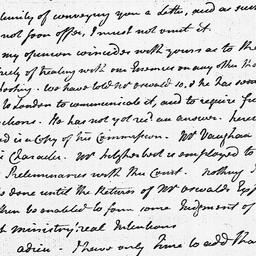 tunity of conveying you a Letter, and as such
not soon offer, I must not omit it.
my opinion coincides with yours as to the
of treating with our Enemies on any other than
footing. We have told Mr Oswald so, & he has sent
to London to communicate it, and to require fu
He has not yet recd an answer. here
is a Copy of his Commission. Mr Vaughan
Character. Mr is employed to
Preliminaries with this Court. nothing
be done until the Return of Mr Oswalds
then be enabled to form some Judgment of
ministry real Intentions
adieu. I have only Time to add that